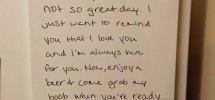 not so great day. I
just want to remind
you that I love you
and I'm always here
for you. Now, enjoy a
beer & come grab my
boob when you're ready